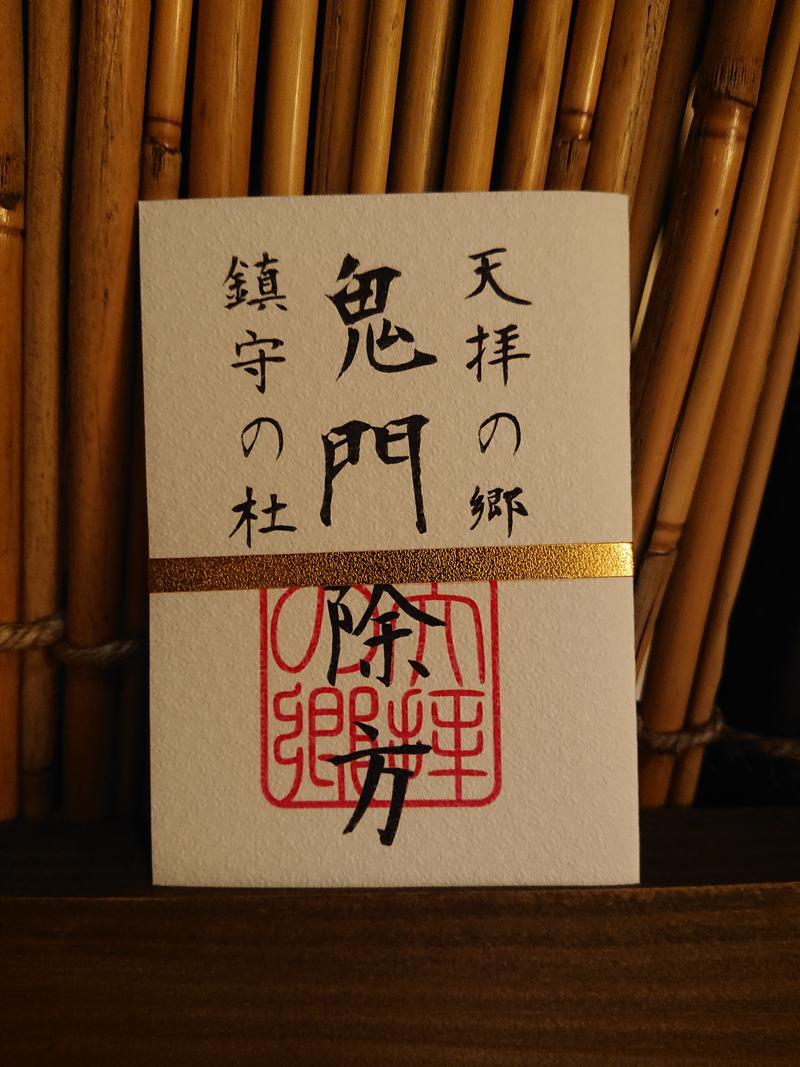 天拝の郷
鬼門除方
鎮守の杜
天拝の郷